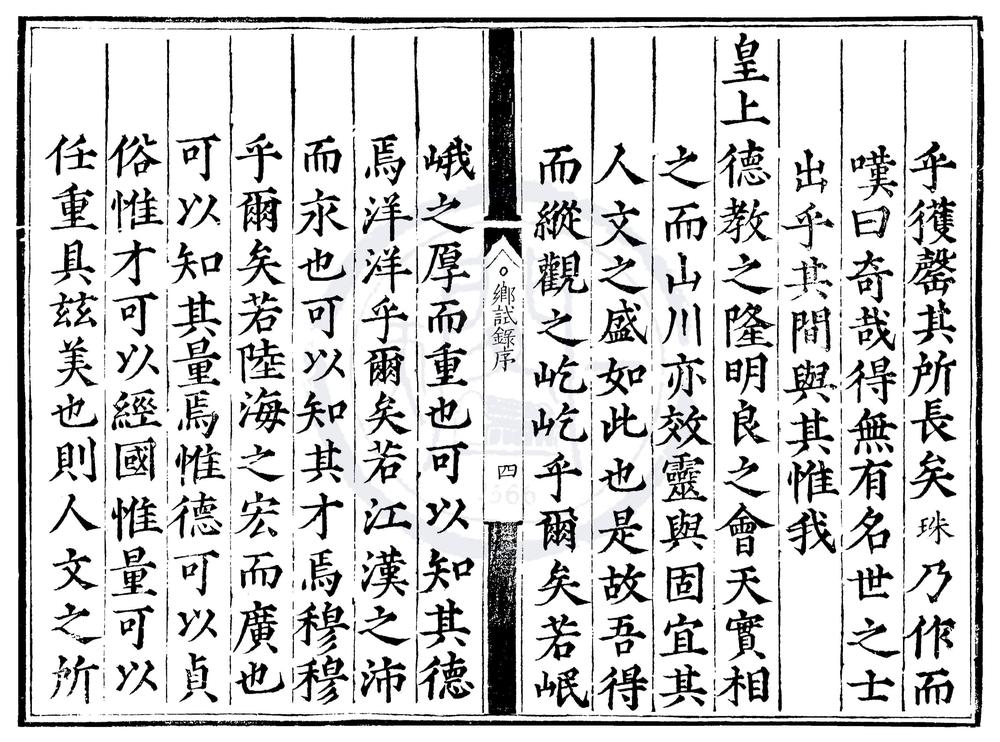 乎獲罄其所長矣珠乃作而
嘆曰奇哉得無有名世之士
出乎其間與其惟我
皇上德教之隆明良之會天實相
之而山川亦效靈與固宜其
人文之盛如此也是故吾得
而縱觀之屹屹乎爾矣若岷
鄉試錄序
四
峨之厚而重也可以知其德
焉洋洋乎爾矣若江漢之沛
而永也可以知其才焉穆穆
乎爾矣若陸海之宏而廣也
可以知其量焉惟德可以貞
俗惟才可以經國惟量可以
任重具茲美也則人文之所